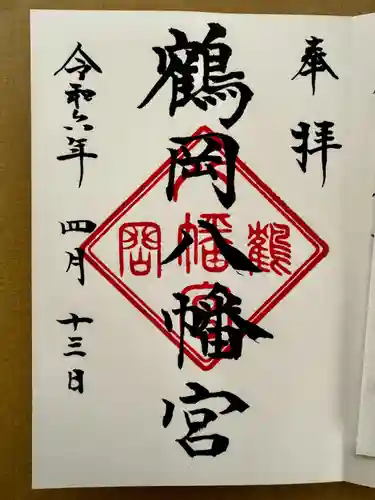 奉拝
鶴岡八幡宮
令和六年 四月 十三日
鶴
八幡宮
岡